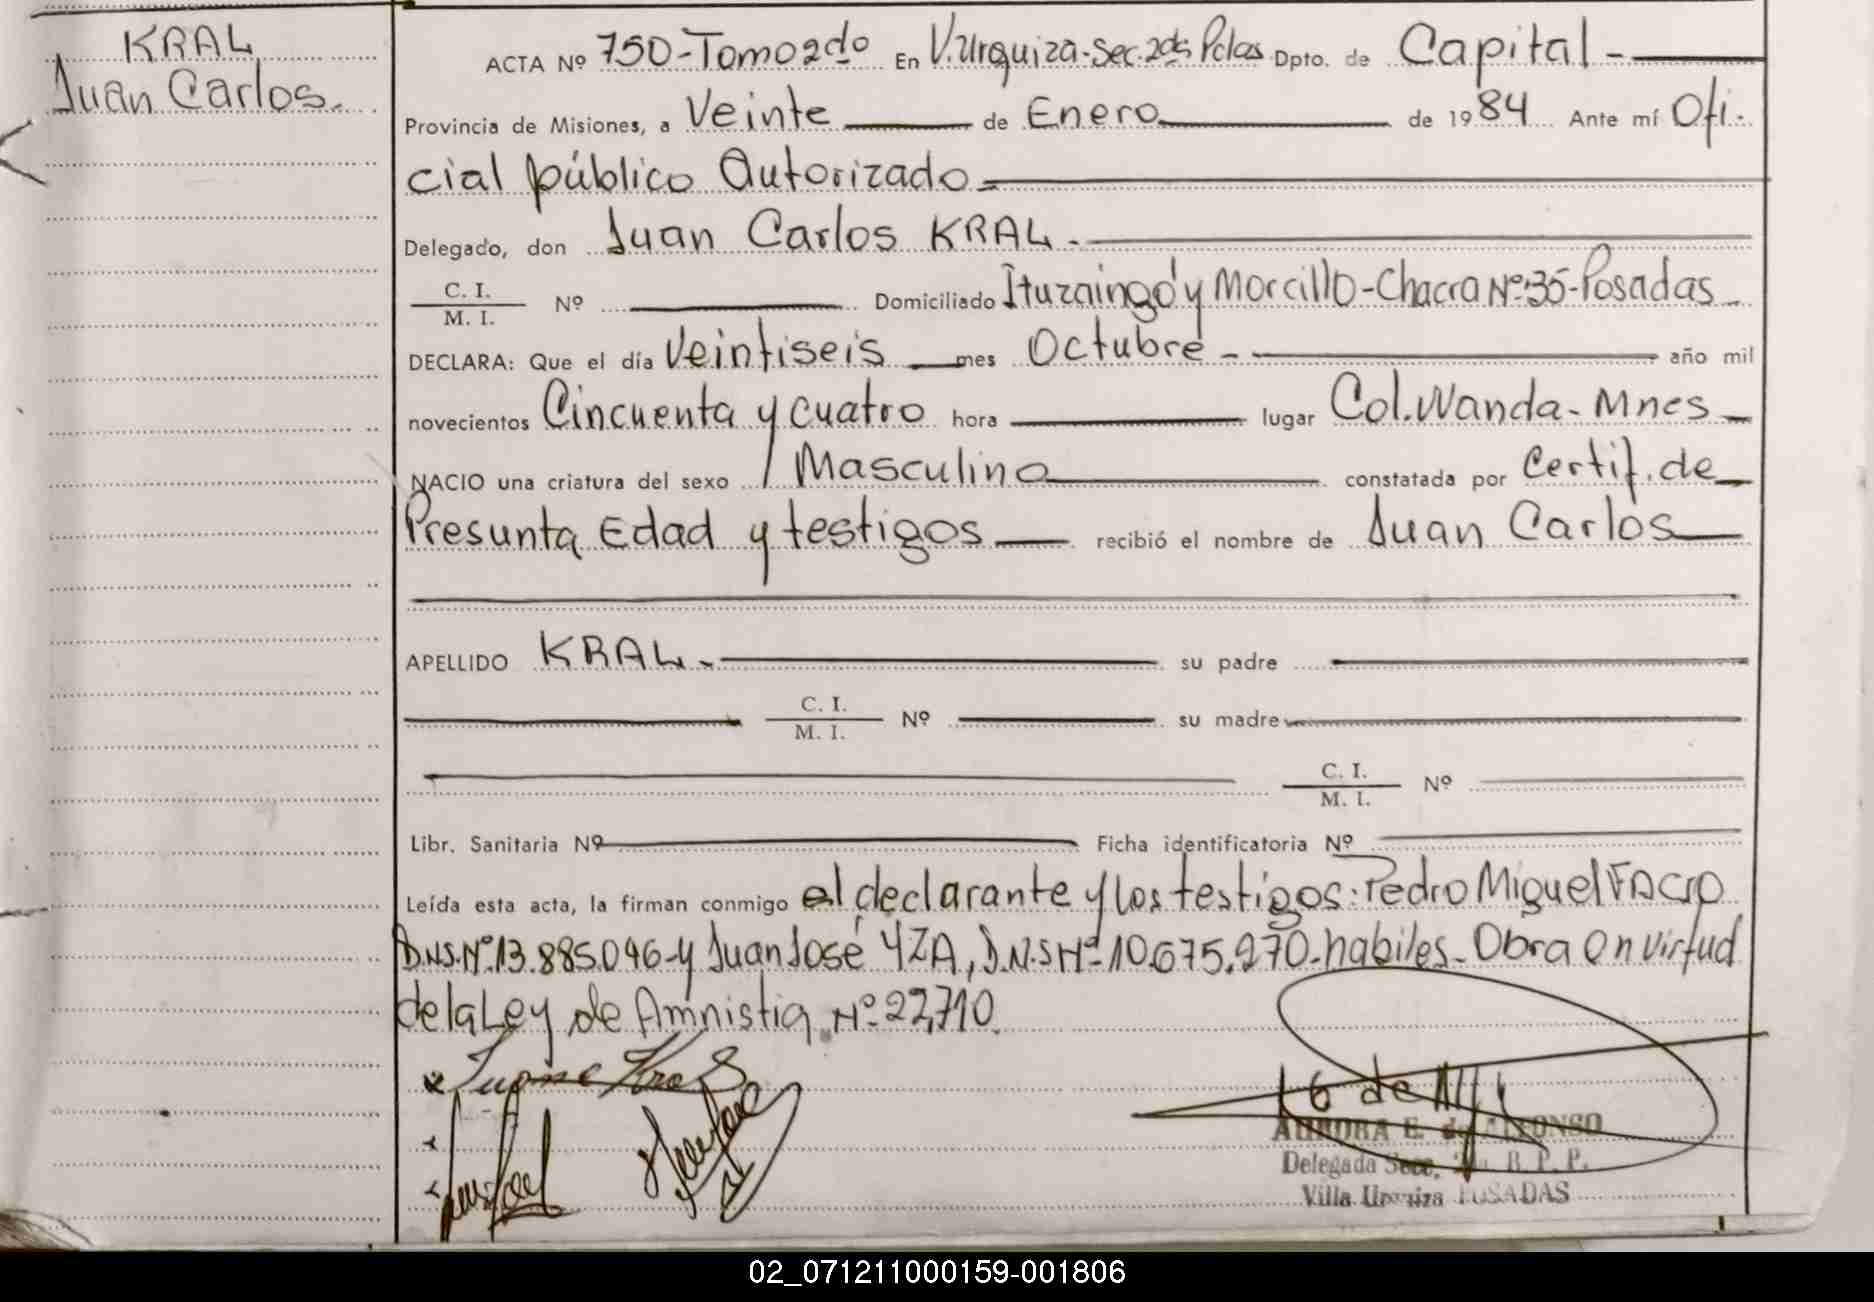 KRAL
Juan Carlos.
ACTA Nº 750-Tomo 2do En V.Urquiza-Sec.2da Pdas Dpto. de Capital -
Provincia de Misiones, a Veinte de Enero de 1984 Ante mí Ofi-
cial público Autorizado
Delegado, don Juan Carlos KRAL.
C. I.
M. I.
Nº Domiciliado Ituzaingó y Morcillo-Chacra Nº 35-Posadas
DECLARA: Que el día Veintiseis mes Octubre - año mil
novecientos Cincuenta y cuatro hora lugar Col.Wanda-Mnes
NACIO una criatura del sexo Masculino constatada por Certif. de
Presunta Edad y testigos recibió el nombre de Juan Carlos
APELLIDO KRAL. su padre
C. I.
M. I.
Nº su madre
C. I.
M. I.
Nº
Libr. Sanitaria Nº Ficha identificatoria Nº
Leída esta acta, la firman conmigo el declarante y los testigos: Pedro Miguel
Nº 13.885.046-y Juan José Nº 10.675.270-habiles-Obra en virtud
de la Ley de Amnistia Nº 22,710.
AURORA E. de ALFONSO
Delegada Secc. 2da R. P. P.
Villa Urquiza POSADAS
02_071211000159-001806